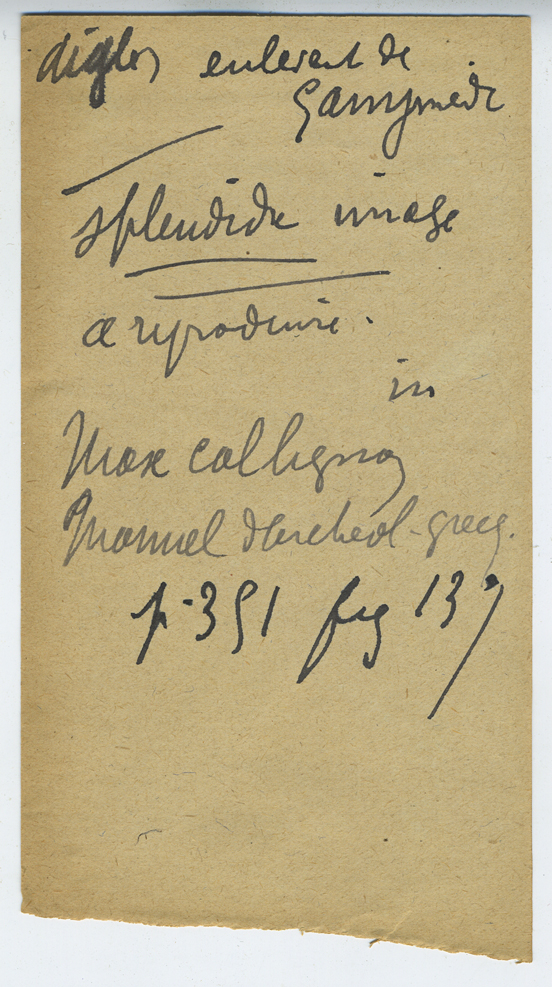 aigles enlevant de
Ganymede
splendide image
a reproduire.
in
Max Collignon
Manuel d'archeol-grecq.
p. 351 fig 137